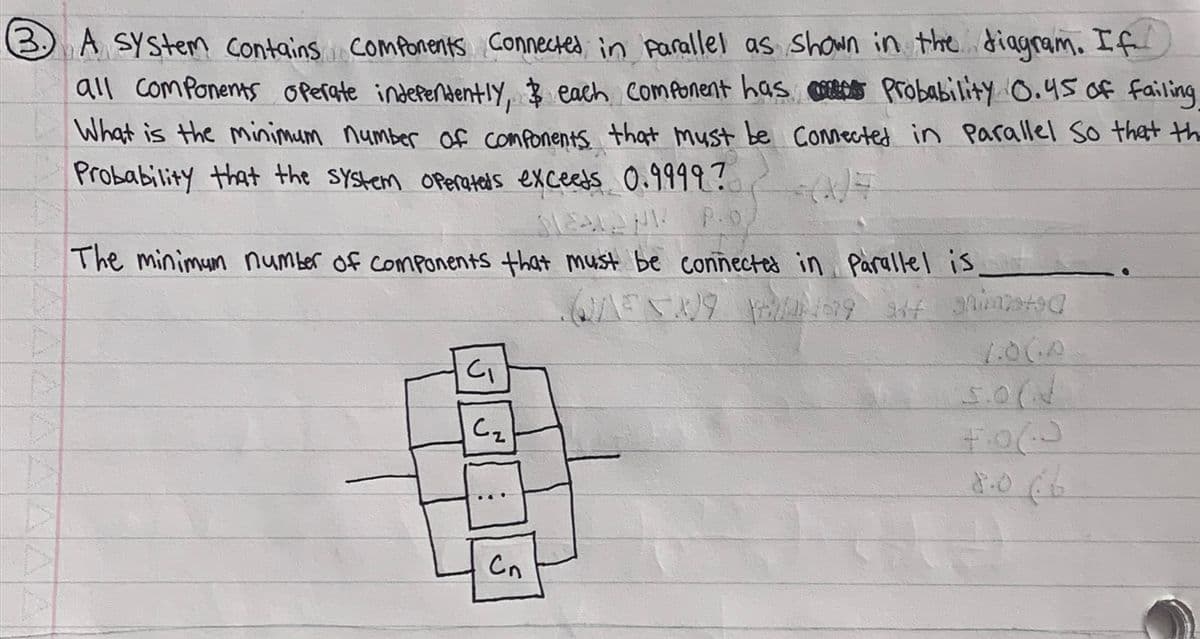 3. A system contains components connected in parallel as shown in the diagram. If
all components operate independently, & each component has probability 0.45 of failing
What is the minimum number of components that must be connected in parallel so that th
probability that the system operateds exceeds 0.9999?
The minimum number of components that must be connected in parallel is ________.
C1
C2
...
Cn